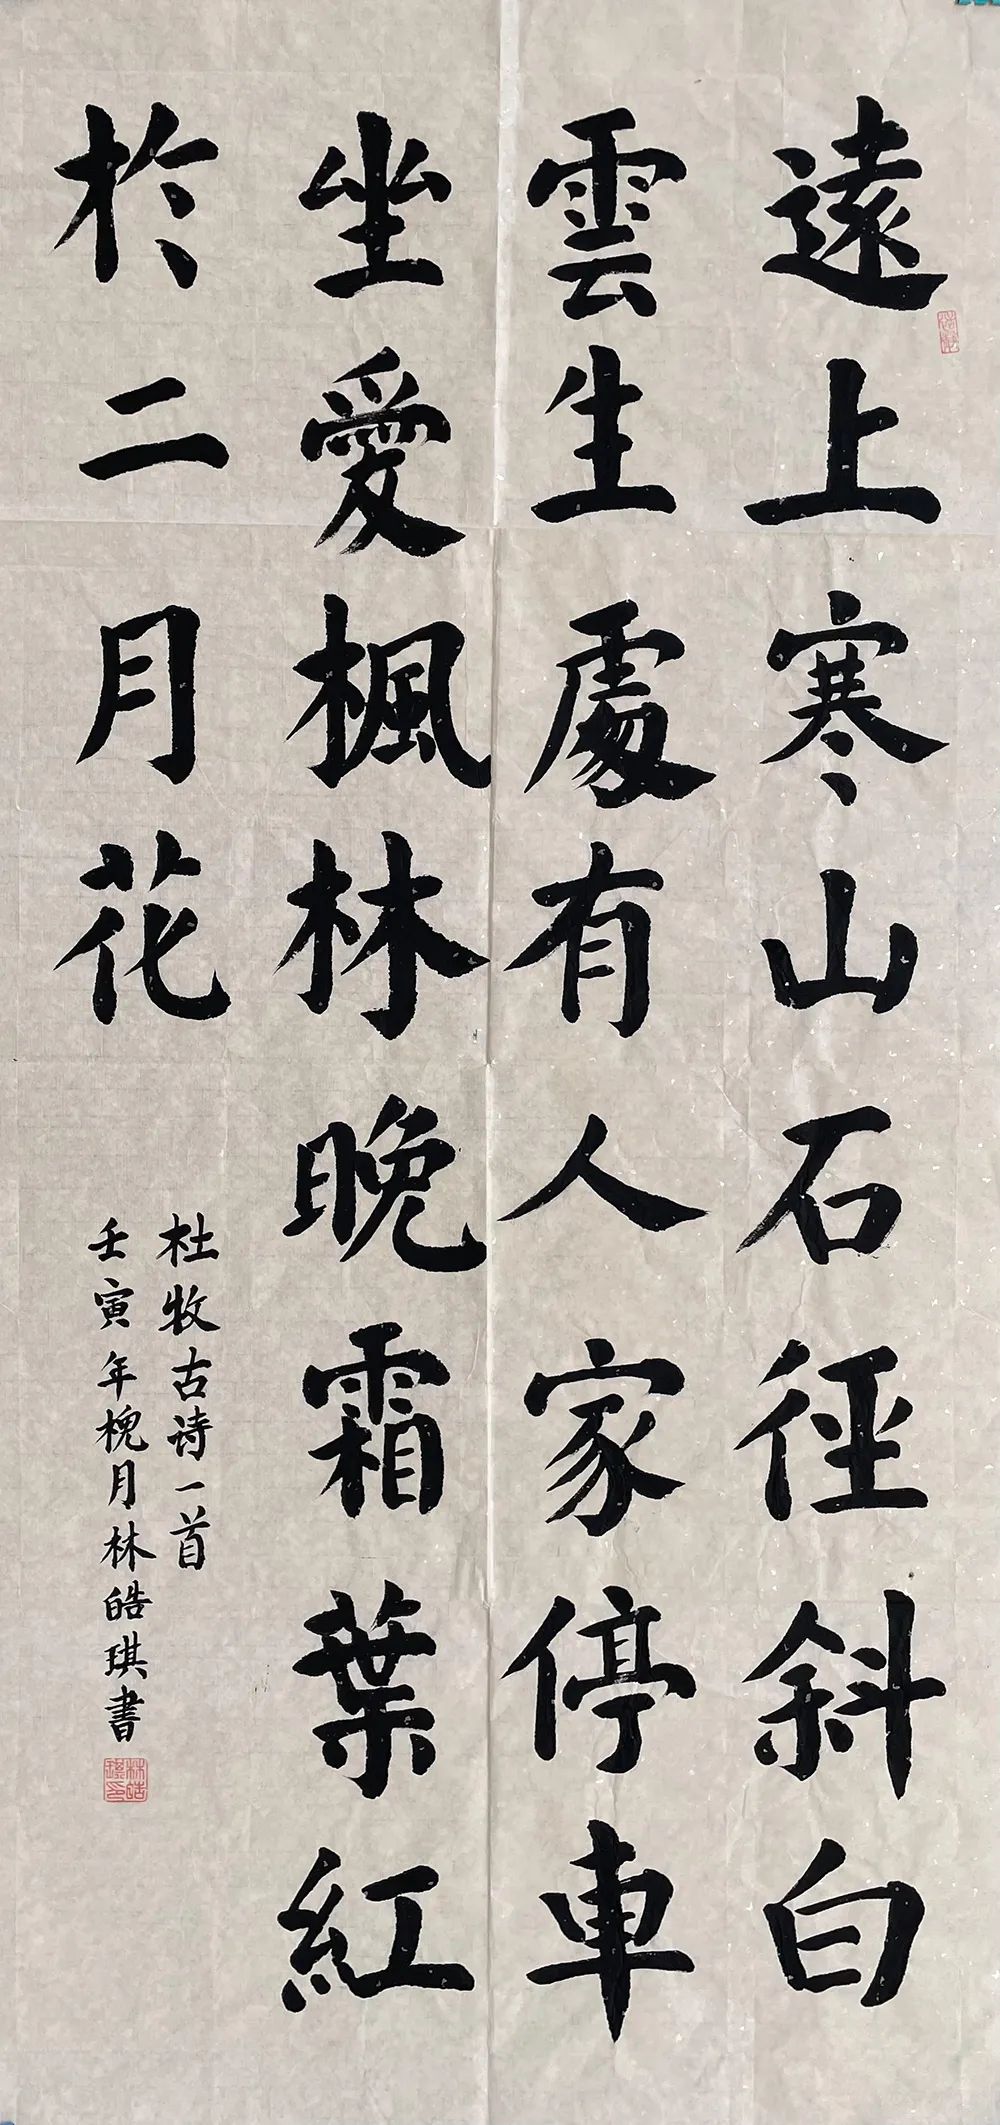 遠上寒山石徑斜白
雲生處有人家停車
坐愛楓林晚霜葉紅
於二月花
杜牧古诗一首
壬寅年槐月林皓琪書